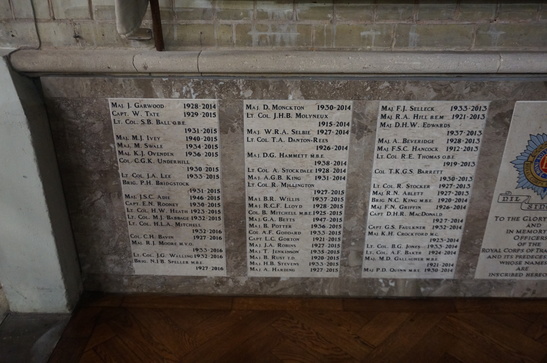 Maj J. Garwood 1928-2015
Capt W. Tate 1929-2015
Lt. Col: S.B. Ball O.B.E.
1931-2015
Maj. M.J. Ivey 1940-2015
Maj. M. Swale 1934-2015
Maj. K.J. Ovendick 1936-2015
Col. C.G.K. Underhill
1930-2015
Lt Col. J.A. Lee 1933-2015
Brig. P.H. Bridgstock
1931-2015
Maj. J.S.C. Adie 1946-2015
Capt. E.N. Rooney 1930-2016
Lt. Col. H.W.
Lt. Col. M.J. 1932-2016
Lt. Col. H.L.A. Mitchell
1932-2016
Col. C.H. Bacon 1927-2016
Maj. R.J. Moore
1933-2016
Lt. Col. J.G. Walling 1932-2016
Brig. N.J.B. Speller M.B.E.
1927-2016
Maj. D. Monckton 1930-2014
Lt Col. J.H.B. Molyneux
1915-2014
Maj. W.R.A. Selbie 1927-2014
Lt Col. T.A. Danton-Rees
1926-2014
Maj. D.G. Hammett M.B.E.
1938-2014
Lt Col. A. Stockdale 1928-2014
Maj. A.G.B. King 1931-2014
Lt Col. B. Millington
1927-2015
Maj. B.R. Willis 1937-2015
Maj. R.C.F. Lloyd 1928-2015
Col. B. Mitchell M.B.E. 1925-2015
Maj. G.A. Bates 1947-2015
Maj. B. Potter 1936-2015
Col. A.F. Goddard 1933-2015
Capt. L.C. Gorton 1921-2015
Maj. J.A. Robins 1927-2015
Maj. T. Jenkinson 1938-2015
Maj. B. Rust T.D. 1920-2015
Maj. H.B. Stevens 1933-2015
Maj. A. Harding 1927-2015
Maj. F.J. Selleck 1933-2013
Maj. R.A. Hill 1921-2013
Maj. D.H.W. Edwards
1937-2013
Maj. A. Beveridge 1928-2013
Maj. F.S.C. Hancock 1912-2013
Lt Col. R.E. Thomas O.B.E.
1919-2013
Col. T.K.G.S. Barrett
1930-2013
Lt Col. R. Stocker 1927-2013
Maj. R.N. Arlett 1927-2013
Brig. N.C. King M.B.E. 1920-2014
Maj. F.N. Griffin 1926-2014
Capt D.H.R. MacDonald
1927-2014
Capt. G.S. Faulkner 1932-2014
Maj. K.H.
1923-2014
Lt. Col. B.G. Jones 1933-2014
Lt. Col. A.F. Baker 1924-2014
Maj. M.D. Gallagher M.B.E.
1921-2014
Maj. P.D. Quinn M.B.E. 1930-2014
To the Glory
and
in memory
Officers
of the
Royal Corps of Tran
and its predeces
whose names
are
inscribed here